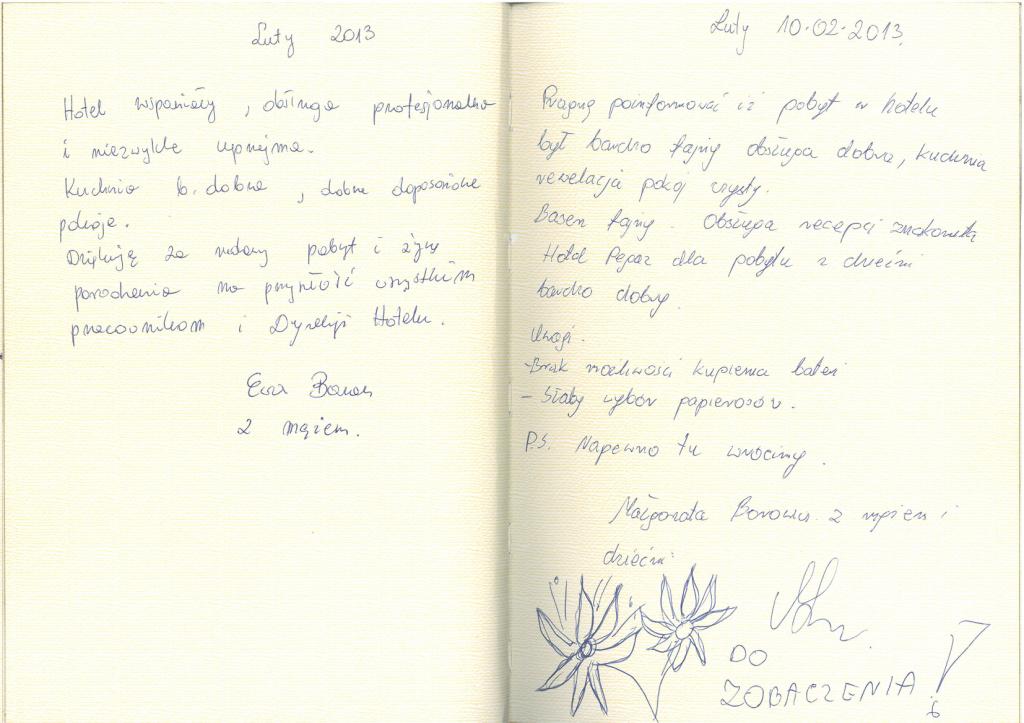 Luty 2013
Hotel wspaniały, obsługa profesjonalna
i niezwykle uprzejma.
Kuchnia b. dobra, dobre doposażone
pokoje.
Dziękuję za udany pobyt i życzę
powodzenia na przyszłość wszystkim
pracownikom i Dyrekcji Hotelu.
Ewa
z mężem.
Luty 10.02.2013.
Pragnę poinformować iż pobyt w hotelu
był bardzo fajny obsługa dobra, kuchnia
rewelacja pokój czysty.
Basen fajny. Obsługa recepcji znakomita
Hotel dla pobytu z dziećmi
bardzo dobry.
Uwagi.
- Brak możliwości kupienia bateri
- Słaby wybór papierosów.
P.S. Napewno tu wrócimy.
Małgorzata z mężem i
dziećmi
DO
ZOBACZENIA!